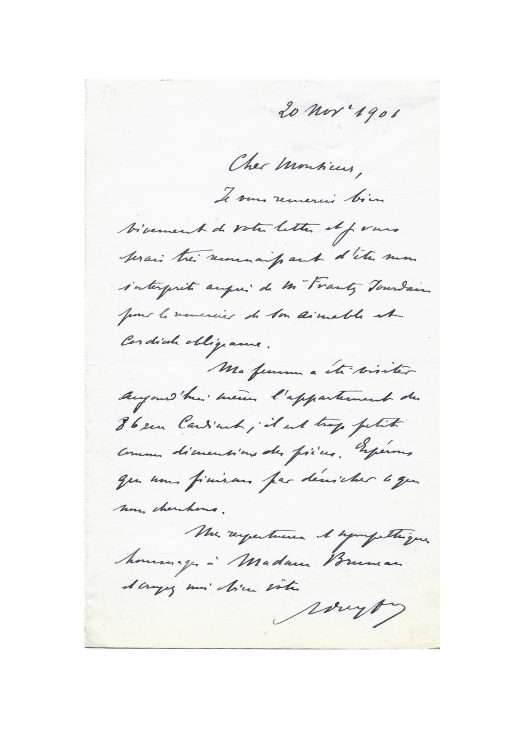 20 Nov^e 1901
Cher Monsieur,
Je vous remercie bien
vivement de votre lettre et je vous
serai très reconnaissant d'être mon
interprète auprès de M^r Frantz Jourdain
pour le remercier de son aimable et
cordiale obligeance.
Ma femme a été visiter
aujourd'hui même l'appartement du
86 rue Cardinet ; il est trop petit
comme dimensions des pièces. Espérons
que nous finirons par dénicher ce que
nous cherchons.
Mes respectueux et sympathiques
hommages à Madame Bruneau
et croyez moi bien vôtre